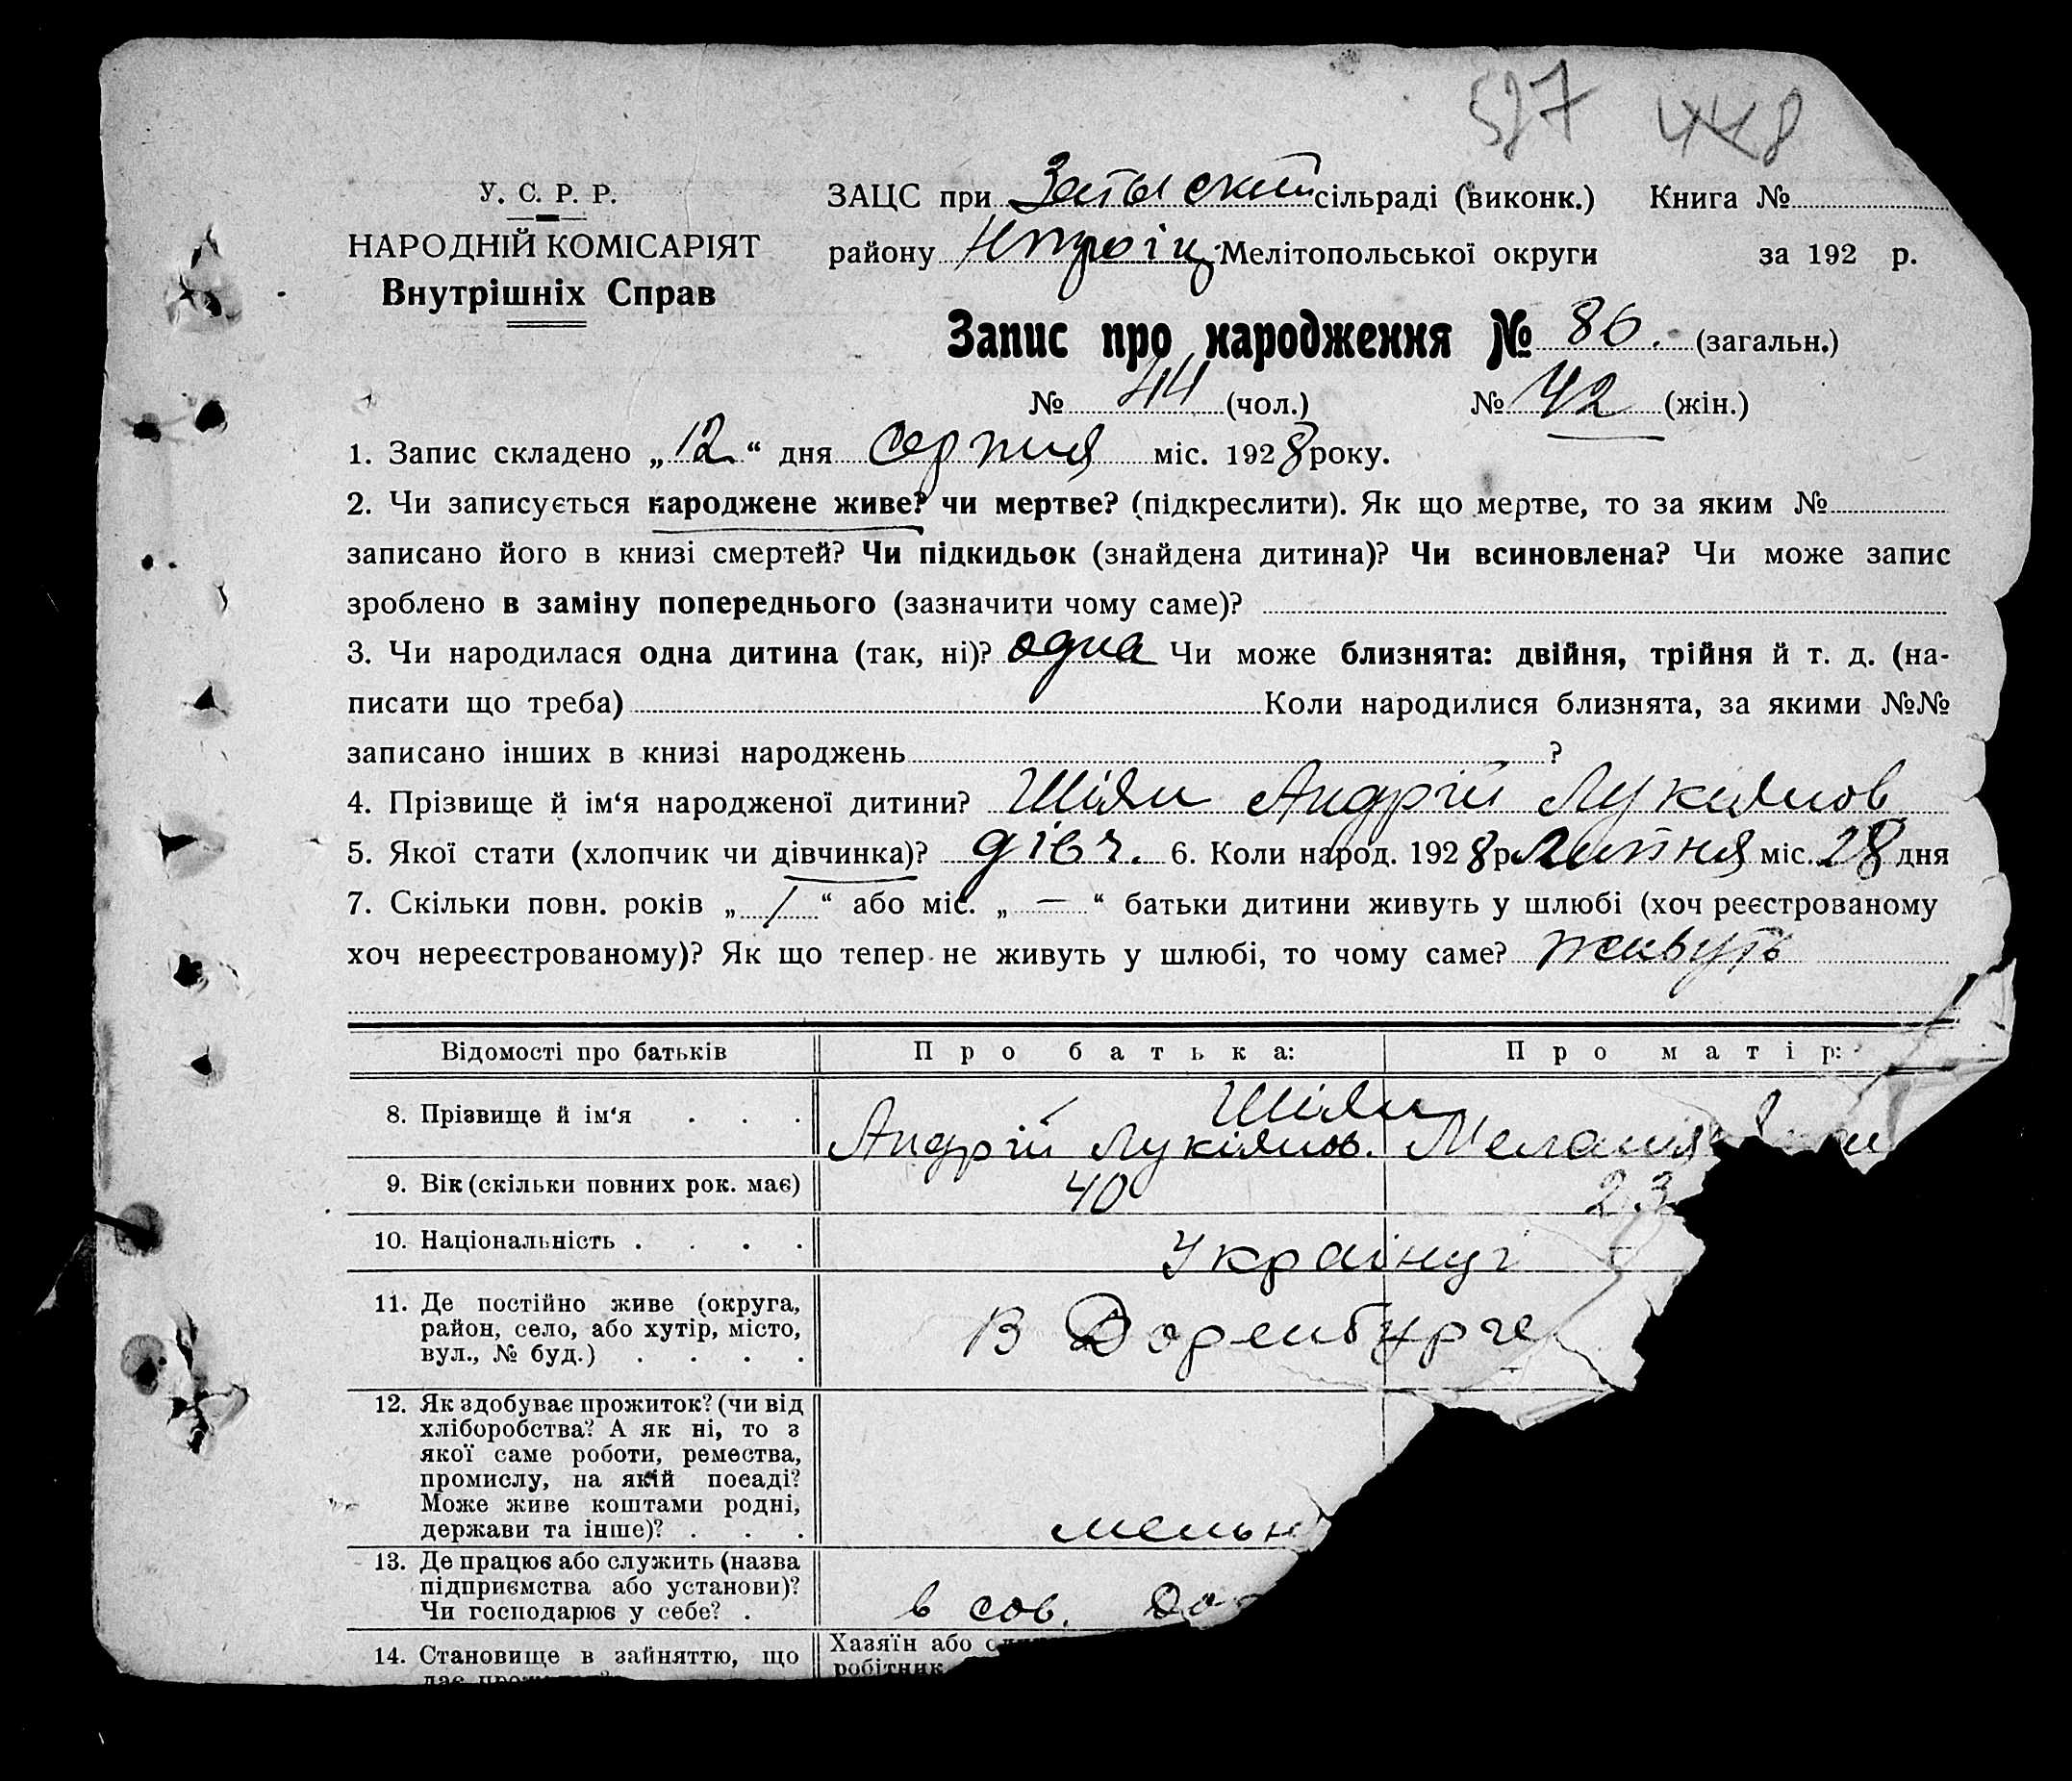 527 448
У. С. Р. Р.
НАРОДНІЙ КОМІСАРІЯТ
Внутрішніх Справ
ЗАЦС при сільраді (виконк.) Книга №
району Нтроіц. Мелітопольської округи за 192 р.
Запис про народження № 86. (загальн.)
№ 44 (чол.) № 42 (жін.)
1. Запис складено „12“ дня серпня міс. 1928 року.
2. Чи записується народжене живе? чи мертве? (підкреслити). Як що мертве, то за яким №
записано його в книзі смертей? Чи підкидьок (знайдена дитина)? Чи всиновлена? Чи може запис
зроблено в заміну попереднього (зазначити чому саме)?
3. Чи народилася одна дитина (так, ні)? одна Чи може близнята: двійня, трійня й т. д. (на-
писати що треба) Коли народилися близнята, за якими №№
записано інших в книзі народжень ?
4. Прізвище й ім‘я народженої дитини? Шіян Андрій Лукіянов
5. Якої стати (хлопчик чи дівчинка)? дівч. 6. Коли народ. 1928 р. липня міс. 28 дня
7. Скільки повн. років „1“ або міс. „—“ батьки дитини живуть у шлюбі (хоч реєстрованому
хоч нереєстрованому)? Як що тепер не живуть у шлюбі, то чому саме? живуть
Відомості про батьків Про батька: Про матір:
8. Прізвище й ім‘я . . . Шіян
Андрій Лукіянов. Меланія
9. Вік (скільки повних рок. має) 40 23
10. Національність . . . . Украінці
11. Де постійно живе (округа,
район, село, або хутір, місто,
вул., № буд.) . . . . В Доренбурге
12. Як здобуває прожиток? (чи від
хліборобства? А як ні, то з
якої саме роботи, ремества,
промислу, на якій посаді?
Може живе коштами родні,
держави та інше)? . . . мельн
13. Де працює або служить (назва
підприємства або установи)?
Чи господарює у себе? . в сов. До
14. Становище в зайняттю, що Хазяїн або
робітник